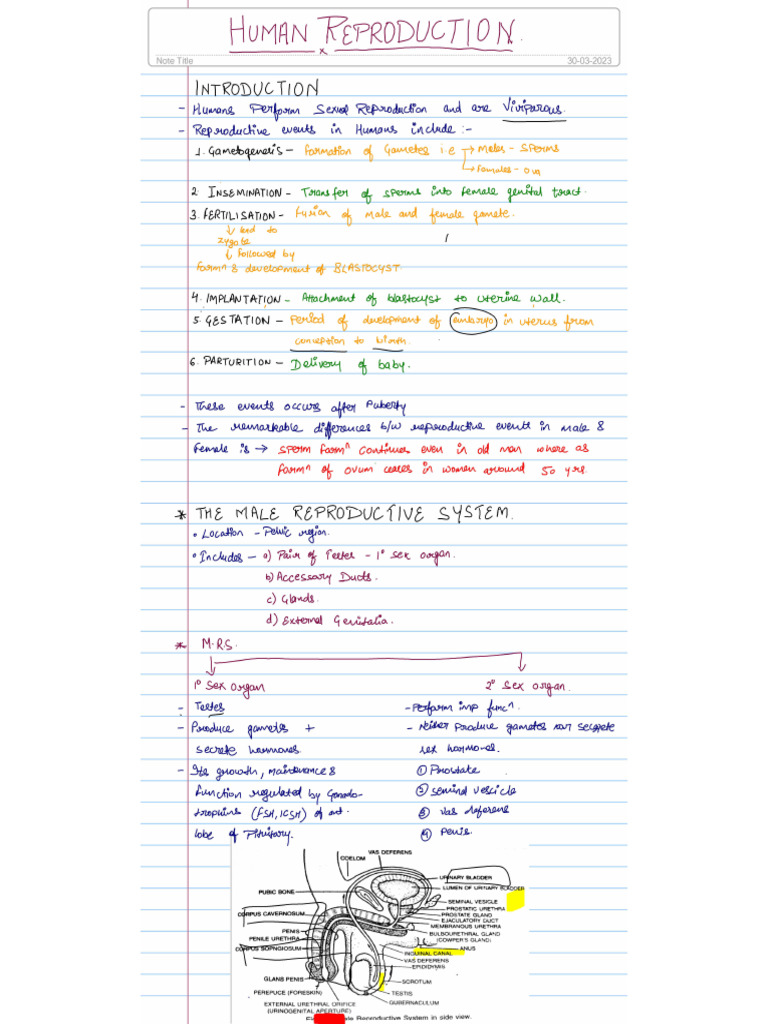 HUMAN REPRODUCTION.
Note Title 30-03-2023
INTRODUCTION
- Humans Perform Sexual Reproduction and are Viviparous.
- Reproductive events in Humans include :-
1. Gametogenesis - Formation of Gametes i.e → Males - Sperms
→ Females - Ova
2. INSEMINATION - Transfer of sperms into female genital tract.
3. FERTILISATION - Fusion of male and female gamete.
↓ lead to
zygote
↓ followed by
formⁿ & development of BLASTOCYST
4. IMPLANTATION - Attachment of blastocyst to uterine wall.
5. GESTATION - Period of development of embryo in uterus from
conception to birth.
6. PARTURITION - Delivery of baby.
- These events occurs after Puberty
- The remarkable differences b/w reproductive event in male &
Female is → sperm formⁿ continues even in old man where as
formⁿ of ovum ceases in women around 50 yrs.
* THE MALE REPRODUCTIVE SYSTEM.
• Location - Pelvic region.
• Includes - a) Pair of Testes - 1° sex organ.
b) Accessory Ducts.
c) Glands.
d) External Genitalia.
* M.R.S.
1° Sex organ 2° Sex organ.
- Testes - Perform imp funcⁿ.
- Produce gametes + - Neither Produce gametes nor secrete
secrete hormones sex hormones.
- Its growth, maintenance & ① Prostate
function regulated by Gonado- ② seminal vescicle
tropins (FSH, ICSH) of ant. ③ vas deferens
lobe of Pituitary. ④ Penis.
VAS DEFERENS
COELOM
URINARY BLADDER
LUMEN OF URINARY BLADDER
PUBIC BONE
SEMINAL VESICLE
PROSTATIC URETHRA
CORPUS CAVERNOSUM
PROSTATE GLAND
EJACULATORY DUCT
MEMBRANOUS URETHRA
PENIS
BULBOURETHRAL GLAND
PENILE URETHRA
(COWPER'S GLAND)
CORPUS SOPNGIOSUM
ANUS
INGUINAL CANAL
VAS DEFERENS
EPIDIDYMIS
GLANS PENIS
SCROTUM
PEREPUCE (FORESKIN)
TESTIS
EXTERNAL URETHRAL ORIFICE
GUBERNACULUM
(URINOGENITAL APERTURE)
Reproductive System in side view.